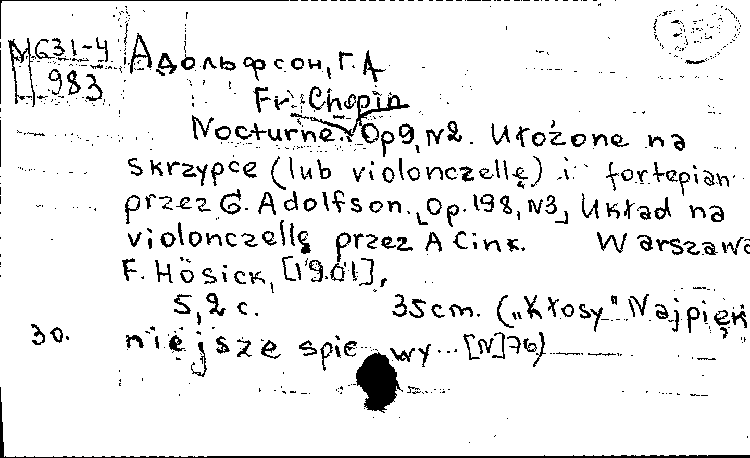 М631-4
983
Адольфсон, Г. А
Fr. Chopin
Nocturne. Op 9, N2. Ułożone na
skrzypce (lub violonczellę) i fortepian
przez G. Adolfson. [Op. 198, N3] Układ na
violonczellę przez A Cink. Warszawa
F. Hösick, [1901],
5,2 c. 35 cm. („Kłosy" Najpięk
30. niejsze spie wy... [N]76)